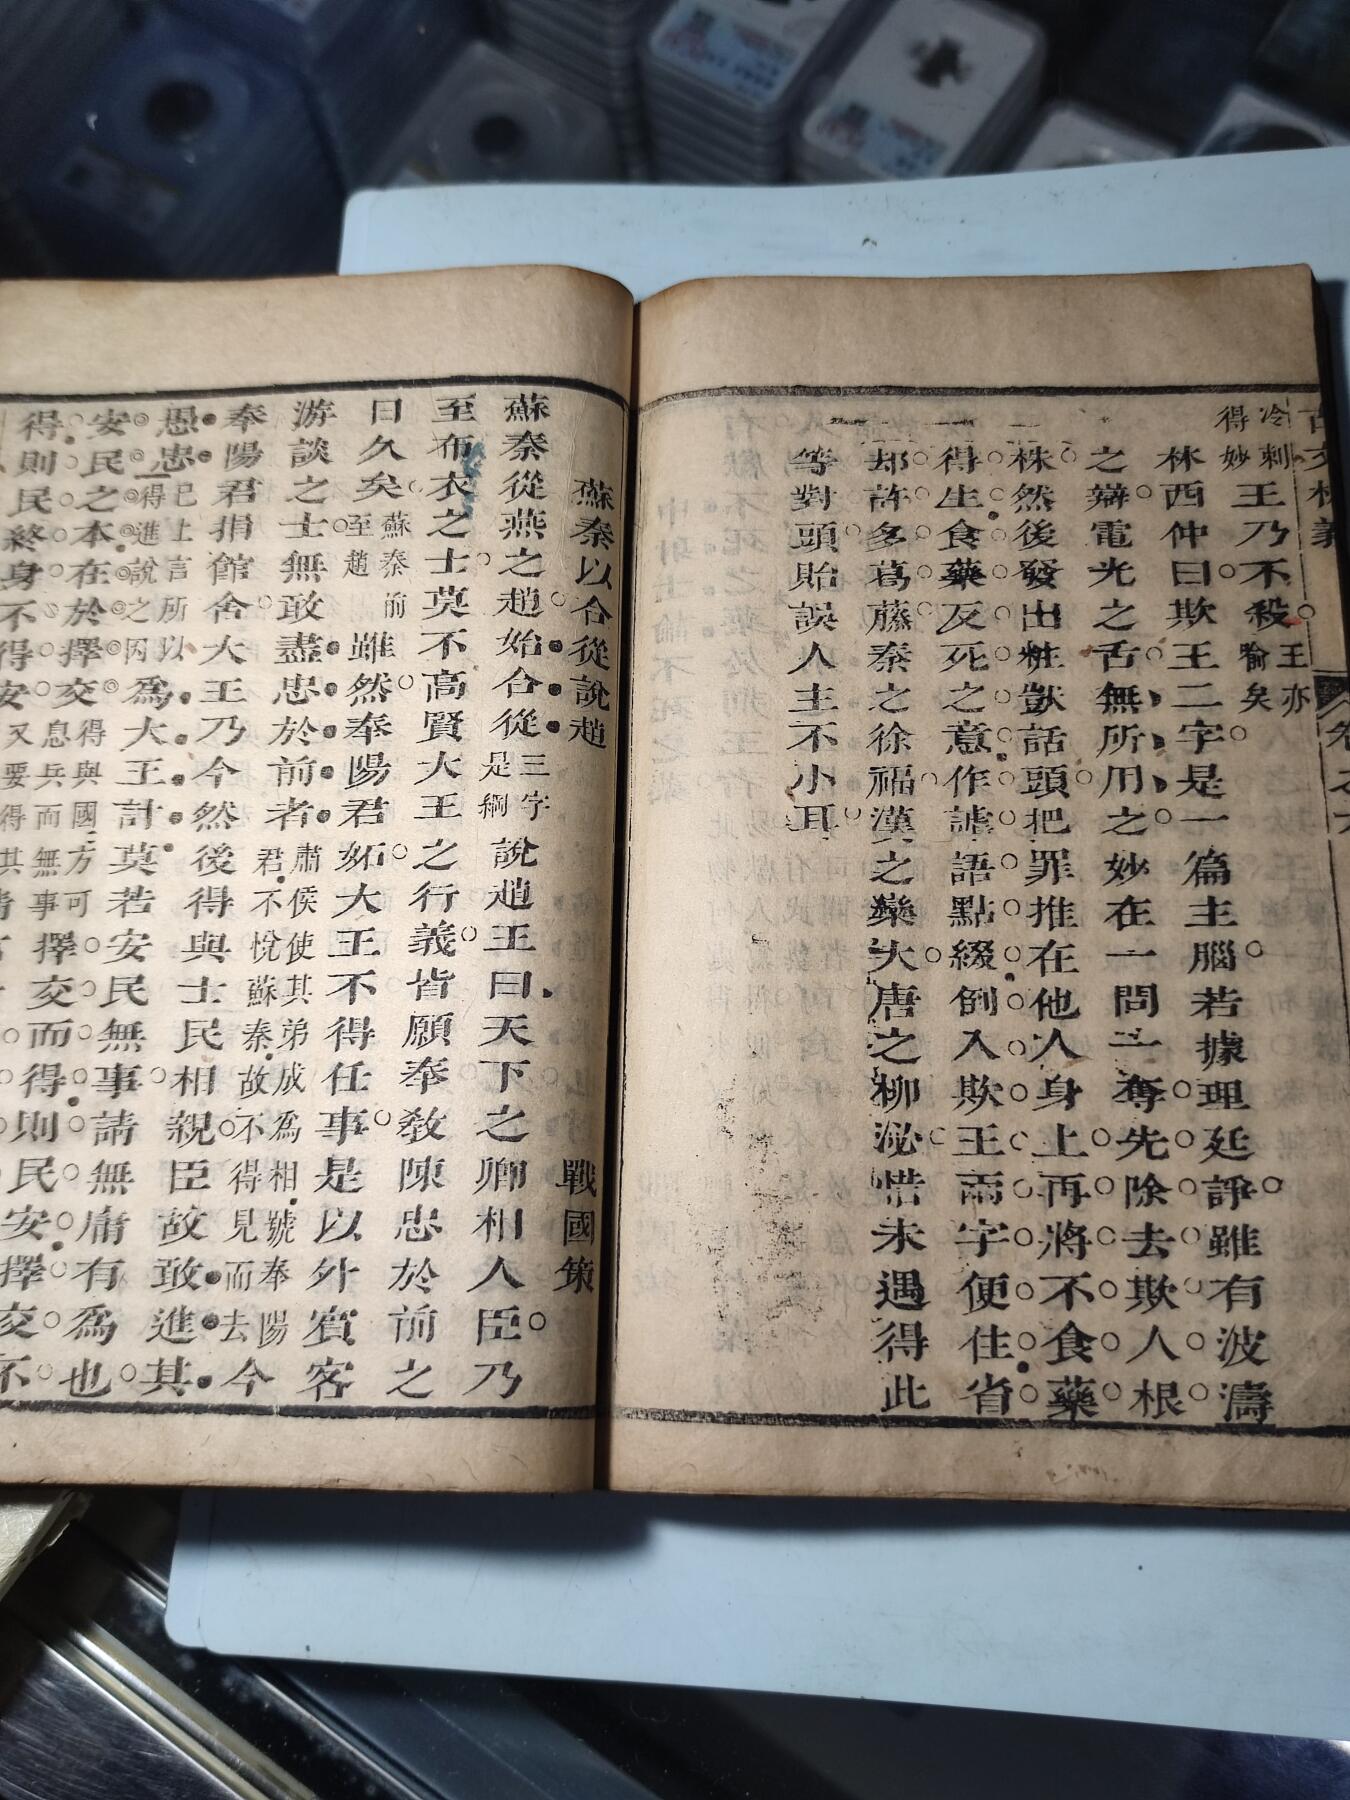 古文析義 卷之六
冷刺得妙王乃不殺王亦喻矣
林西仲曰欺王二字是一篇主腦若據理廷諍雖有波濤
之辯電光之舌無所用之妙在一問一奪先除去欺人根
株然後發出粧獃話頭把罪推在他人身上再將不食藥
得生食藥反死之意作謔語點綴倒入欺王兩字便住省
却許多葛藤秦之徐福漢之欒大唐之柳泌惜未遇得此
等對頭貽誤人主不小耳
蘇秦以合從說趙 戰國策
蘇秦從燕之趙始合從三字是綱說趙王曰天下之卿相人臣乃
至布衣之士莫不高賢大王之行義皆願奉教陳忠於前之
日久矣蘇秦前至趙雖然奉陽君妬大王不得任事是以外賓客
游談之士無敢盡忠於前者肅侯使其弟成爲相號奉陽君不悅蘇秦故不得見而去今
奉陽君捐館舍大王乃今然後得與士民相親臣故敢進其
愚忠已上言所以得進說之因爲大王計莫若安民無事請無庸有爲也
安民之本在於擇交得與國方可息兵而無事擇交而得則民安擇交不
得則民終身不得安又要得其